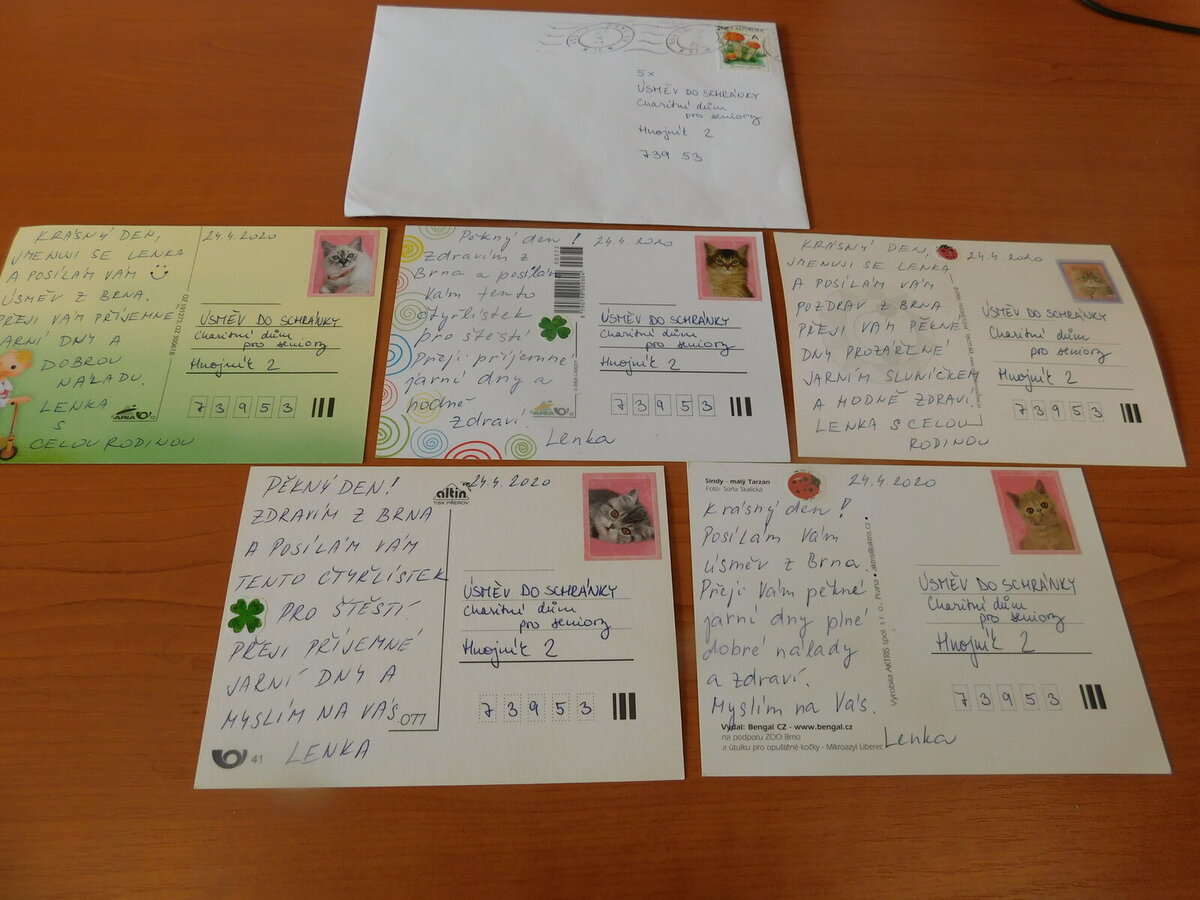 5x
ÚSMĚV DO SCHRÁNKY
Charitní dům
pro seniory
Hnojník 2
739 53
KRÁSNÝ DEN,
JMENUJI SE LENKA
A POSÍLÁM VÁM
ÚSMĚV Z BRNA.
PŘEJI VÁM PŘÍJEMNÉ
JARNÍ DNY A
DOBROU
NÁLADU.
LENKA
S
CELOU RODINOU
24.4.2020
ÚSMĚV DO SCHRÁNKY
Charitní dům
pro seniory
Hnojník 2
73953
ARIA
Pěkný den!
Zdravím z
Brna a posílám
Vám tento
čtyřlístek
pro štěstí
Přeji příjemné
jarní dny a
hodně
zdraví.
Lenka
24.4.2020
ÚSMĚV DO SCHRÁNKY
Charitní dům
pro seniory
Hnojník 2
73953
ARIA
KRÁSNÝ DEN,
JMENUJI SE LENKA
A POSÍLÁM VÁM
POZDRAV Z BRNA.
PŘEJI VÁM PĚKNÉ
DNY PROZÁŘENÉ
JARNÍM SLUNÍČKEM
A HODNĚ ZDRAVÍ.
LENKA S CELOU
RODINOU
24.4.2020
ÚSMĚV DO SCHRÁNKY
Charitní dům
pro seniory
Hnojník 2
73953
PĚKNÝ DEN!
ZDRAVÍM Z BRNA
A POSÍLÁM VÁM
TENTO ČTYŘLÍSTEK
PRO ŠTĚSTÍ.
PŘEJI PŘÍJEMNÉ
JARNÍ DNY A
MYSLÍM NA VÁS
LENKA
altin
TISK PŘEROV
24.4.2020
ÚSMĚV DO SCHRÁNKY
Charitní dům
pro seniory
Hnojník 2
73953
OTT
41
Sindy - malý Tarzan
Foto: Soňa Skalická
24.4.2020
Krásný den!
Posílám Vám
úsměv z Brna.
Přeji Vám pěkné
jarní dny plné
dobré nálady
a zdraví.
Myslím na Vás.
Lenka
Vyrobila AKTRIS spol. s r. o., Praha • aktris@aktris.cz •
ÚSMĚV DO SCHRÁNKY
Charitní dům
pro seniory
Hnojník 2
73953
Vydal: Bengal CZ - www.bengal.cz
na podporu ZOO Brno
a útulku pro opuštěné kočky - Mikroazyl Liberec